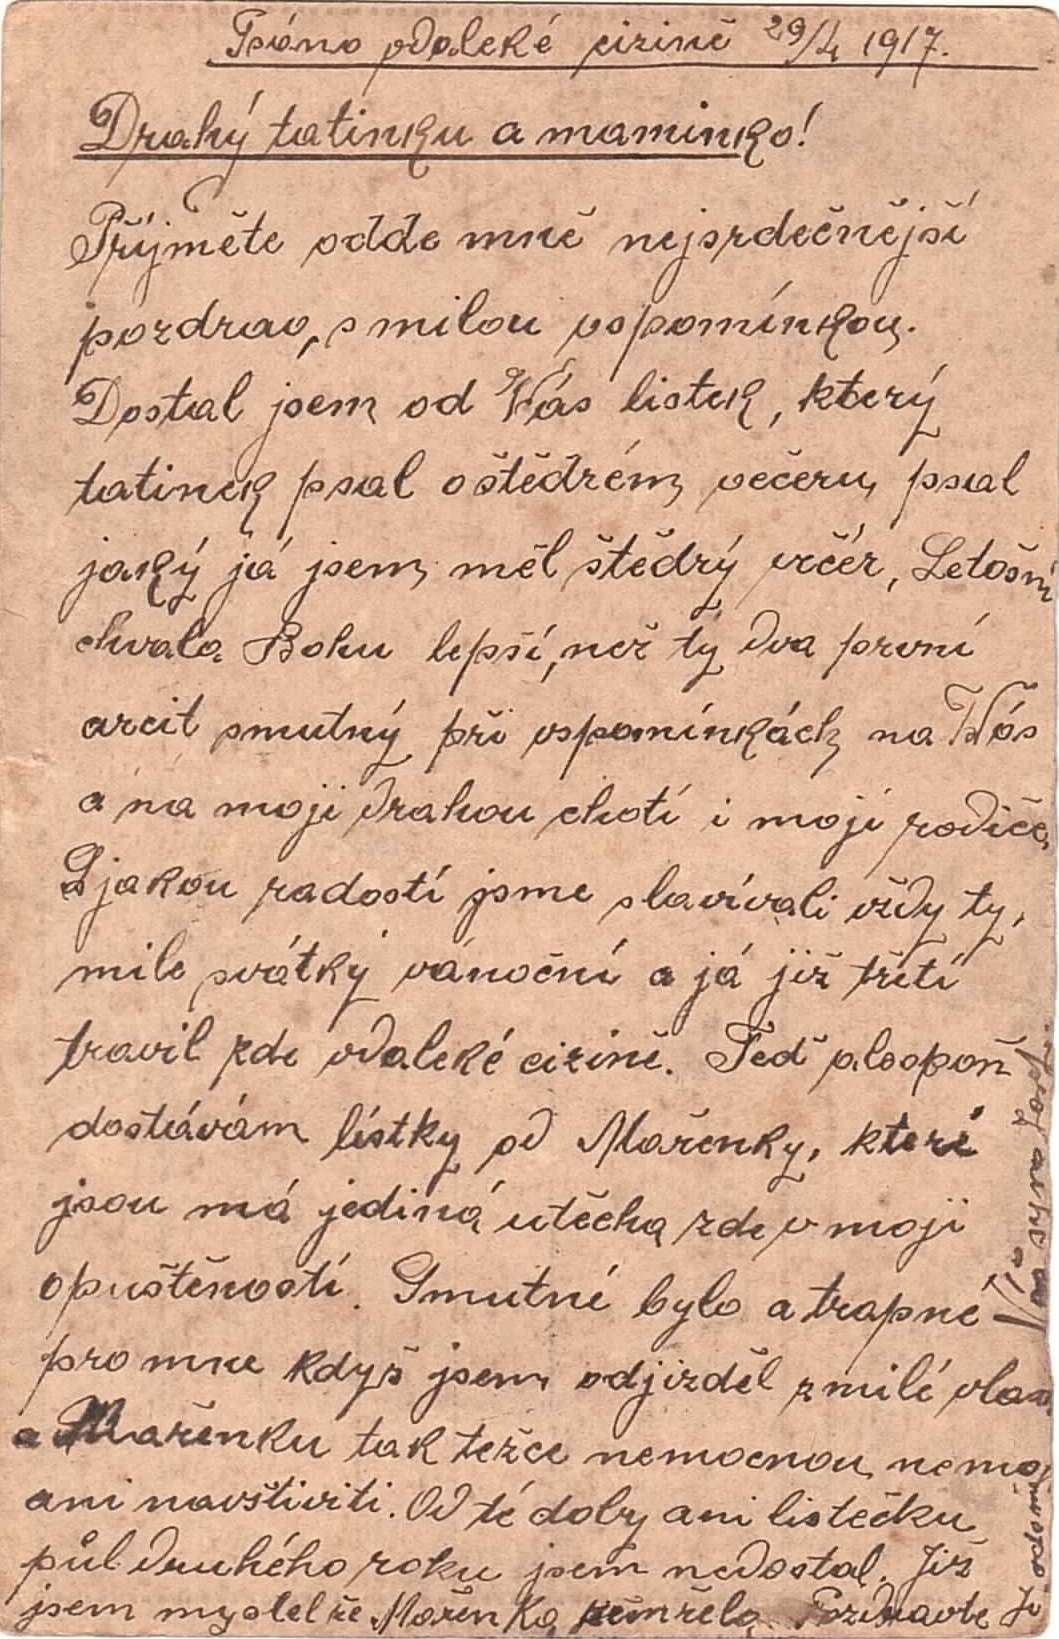 Psáno vdaleké cizině 29/4 1917.
Drahý tatinku a maminko!
Příjměte odde mně nejsrdečnější
pozdrav, s milou vspomínkou.
Dostal jsem od Vás listek, který
tatinek psal o štědrém večeru, psal
jaký já jsem měl štědrý večér, Letošní
chvala Bohu lepší, než ty dva první
arcit smutný při vspomínkách na Vás
a na moji drahou chotí i moji rodiče,
S jakou radostí jsme slavívali vždy ty,
mile svátky vánoční a já již třetí
travil zde vdaleké cizině. Teď alespoň
dostávám lístky od Mařenky, které
jsou má jediná utěcha zde v moji
opuštěností. Smutné bylo a trapne
pro mne když jsem odjizděl z milé vlas
a Mařenku tak težce nemocnou nemo
ani navštiviti. Od té doby ani listečku
půl druhého roku jsem nedostal. Již
jsem myslel že Mařenka zemřela Pozdravte
Ji odemě